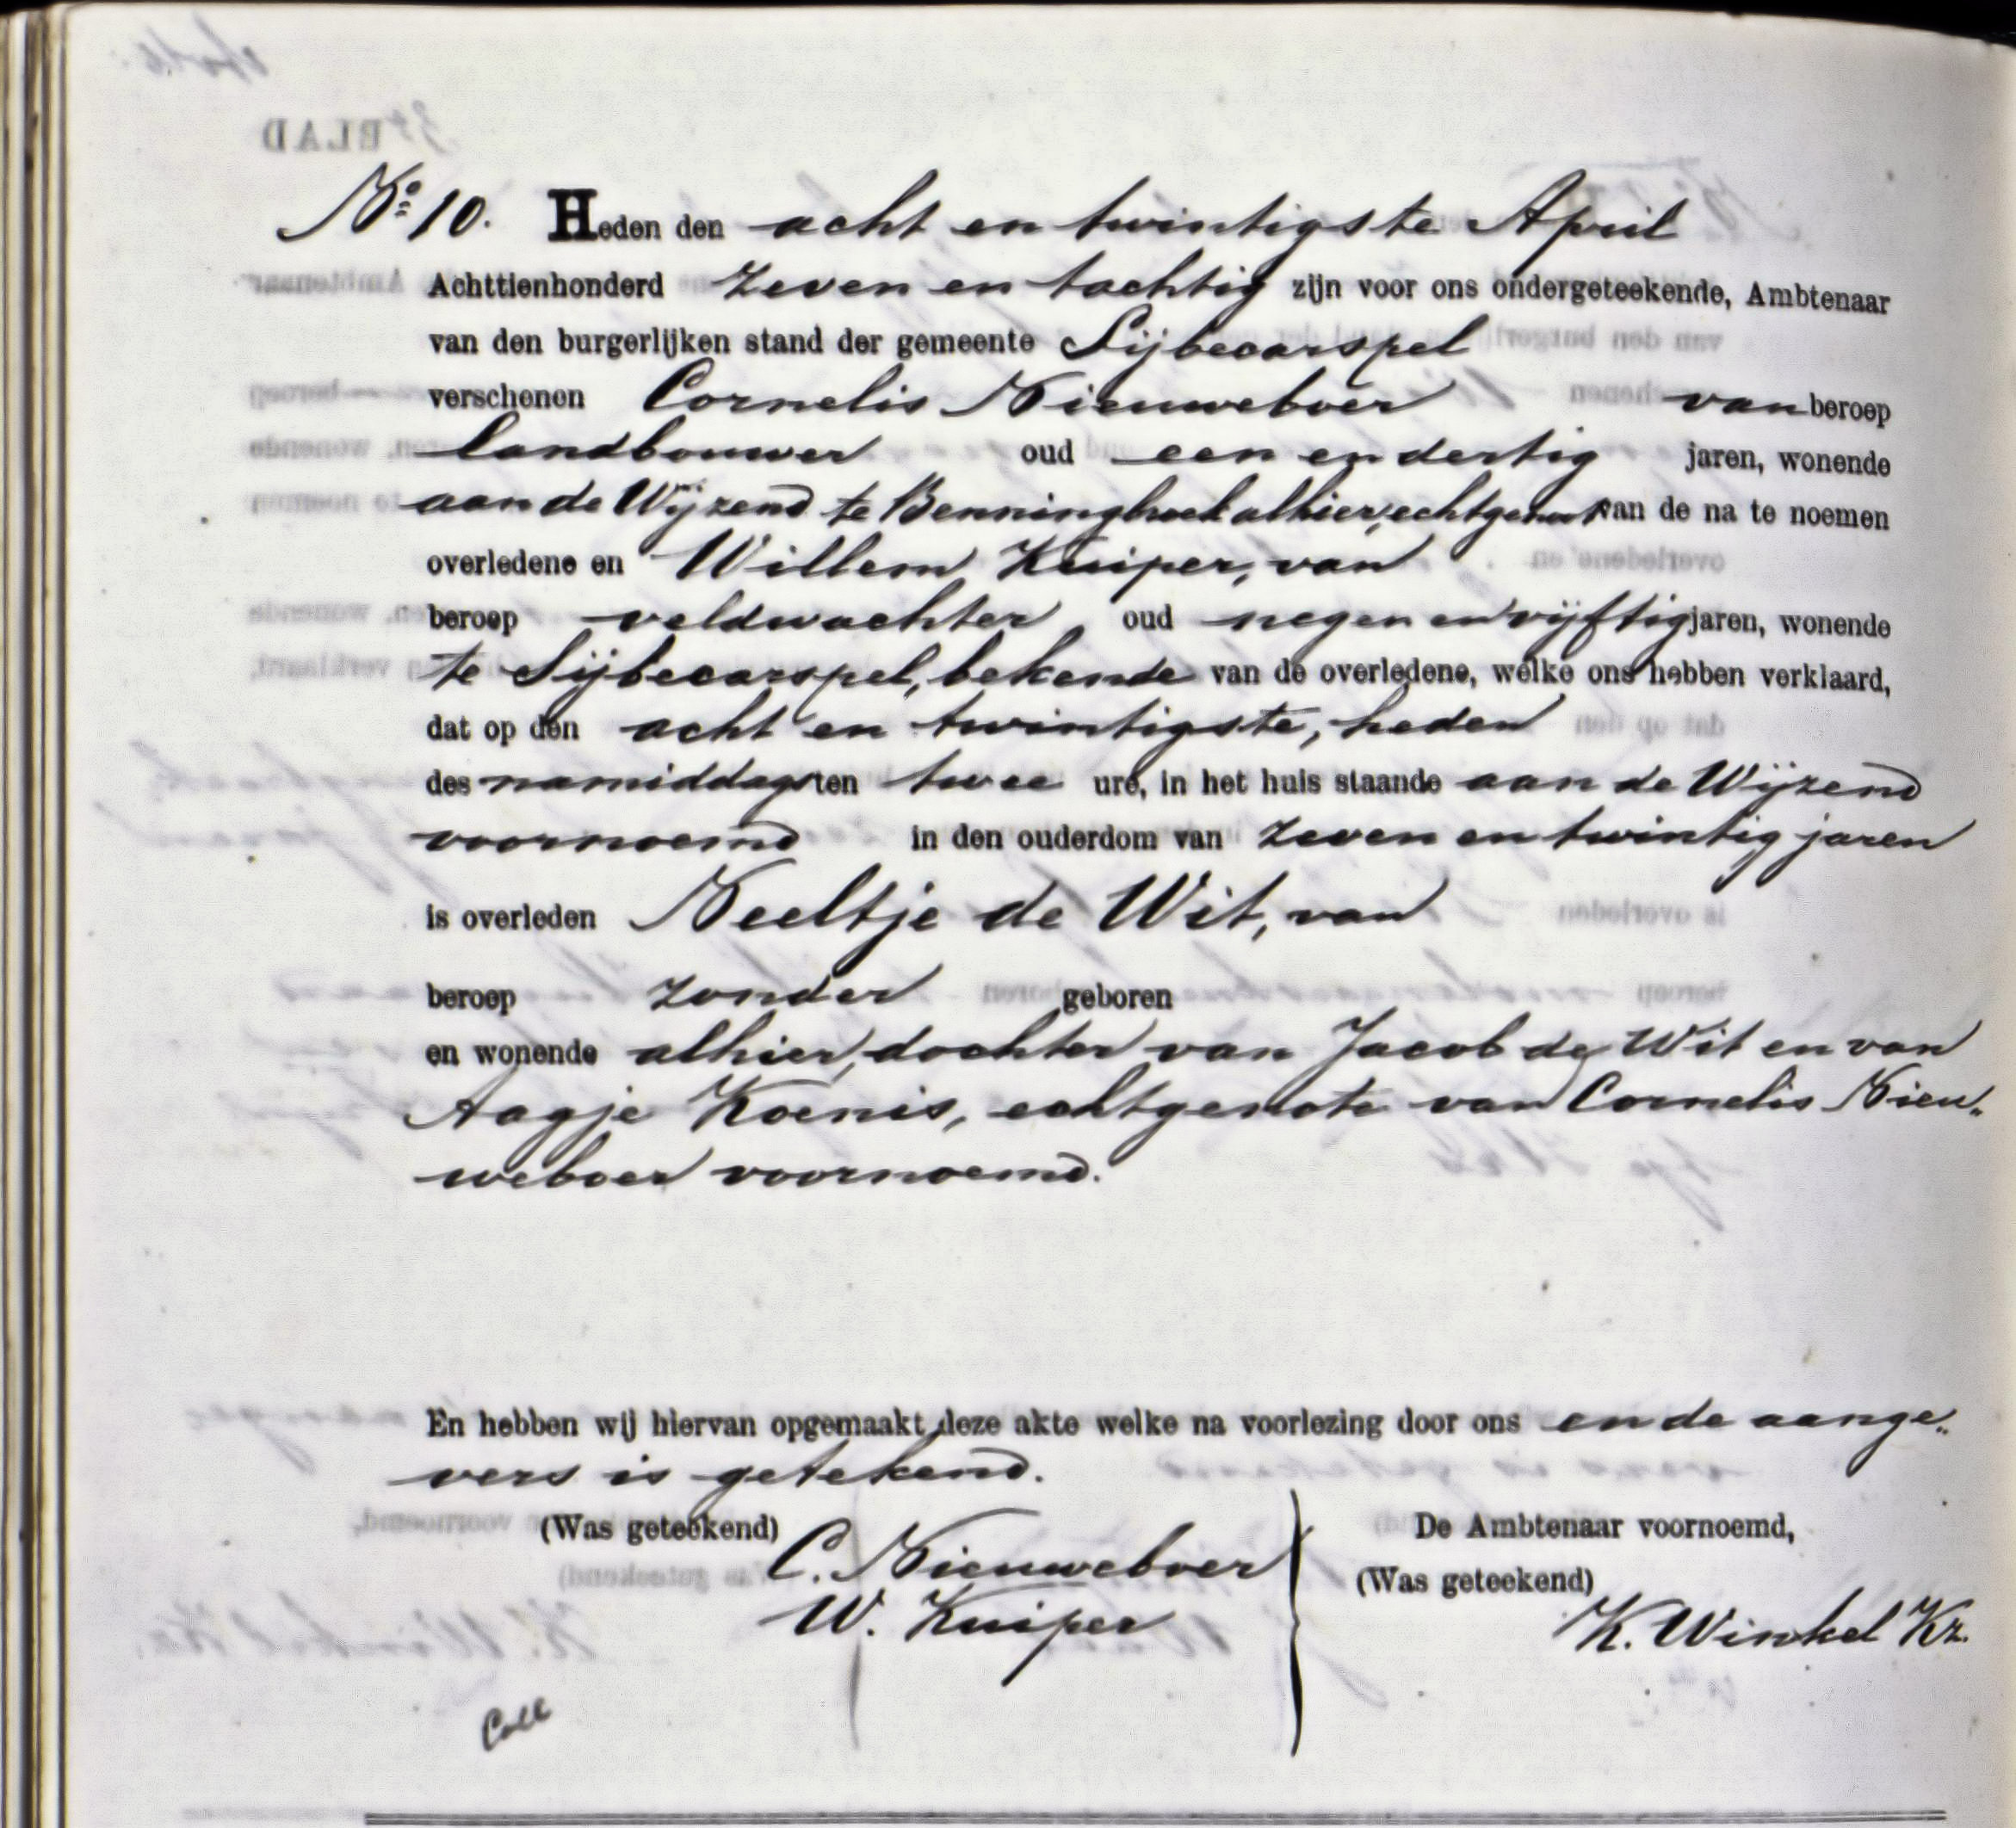 No. 10. Heden den acht en twintigste April
Achttienhonderd zeven en tachtig zijn voor ons ondergeteekende, Ambtenaar
van den burgerlijken stand der gemeente Sijbecarspel
verschenen Cornelis Nieuweboer van beroep
landbouwer oud een en dertig jaren, wonende
aan de Wijzend te Benningbroek alhier, echtgenoot van de na te noemen
overledene en Willem Kuiper, van
beroep veldwachter oud negen en vijftig jaren, wonende
te Sijbecarspel, bekende van de overledene, welke ons hebben verklaard,
dat op den acht en twintigste, heden
des namiddags ten twee ure, in het huis staande aan de Wijzend
voornoemd in den ouderdom van zeven en twintig jaren
is overleden Neeltje de Wit, van
beroep zonder geboren
en wonende alhier, dochter van Jacob de Wit en van
Aagje Koenis, echtgenote van Cornelis Nieu„
weboer voornoemd.
En hebben wij hiervan opgemaakt deze akte welke na voorlezing door ons en de aange„
vers is getekend.
(Was geteekend) C. Nieuweboer
W. Kuiper
De Ambtenaar voornoemd,
(Was geteekend)
K. Winkel Kz.
Coll